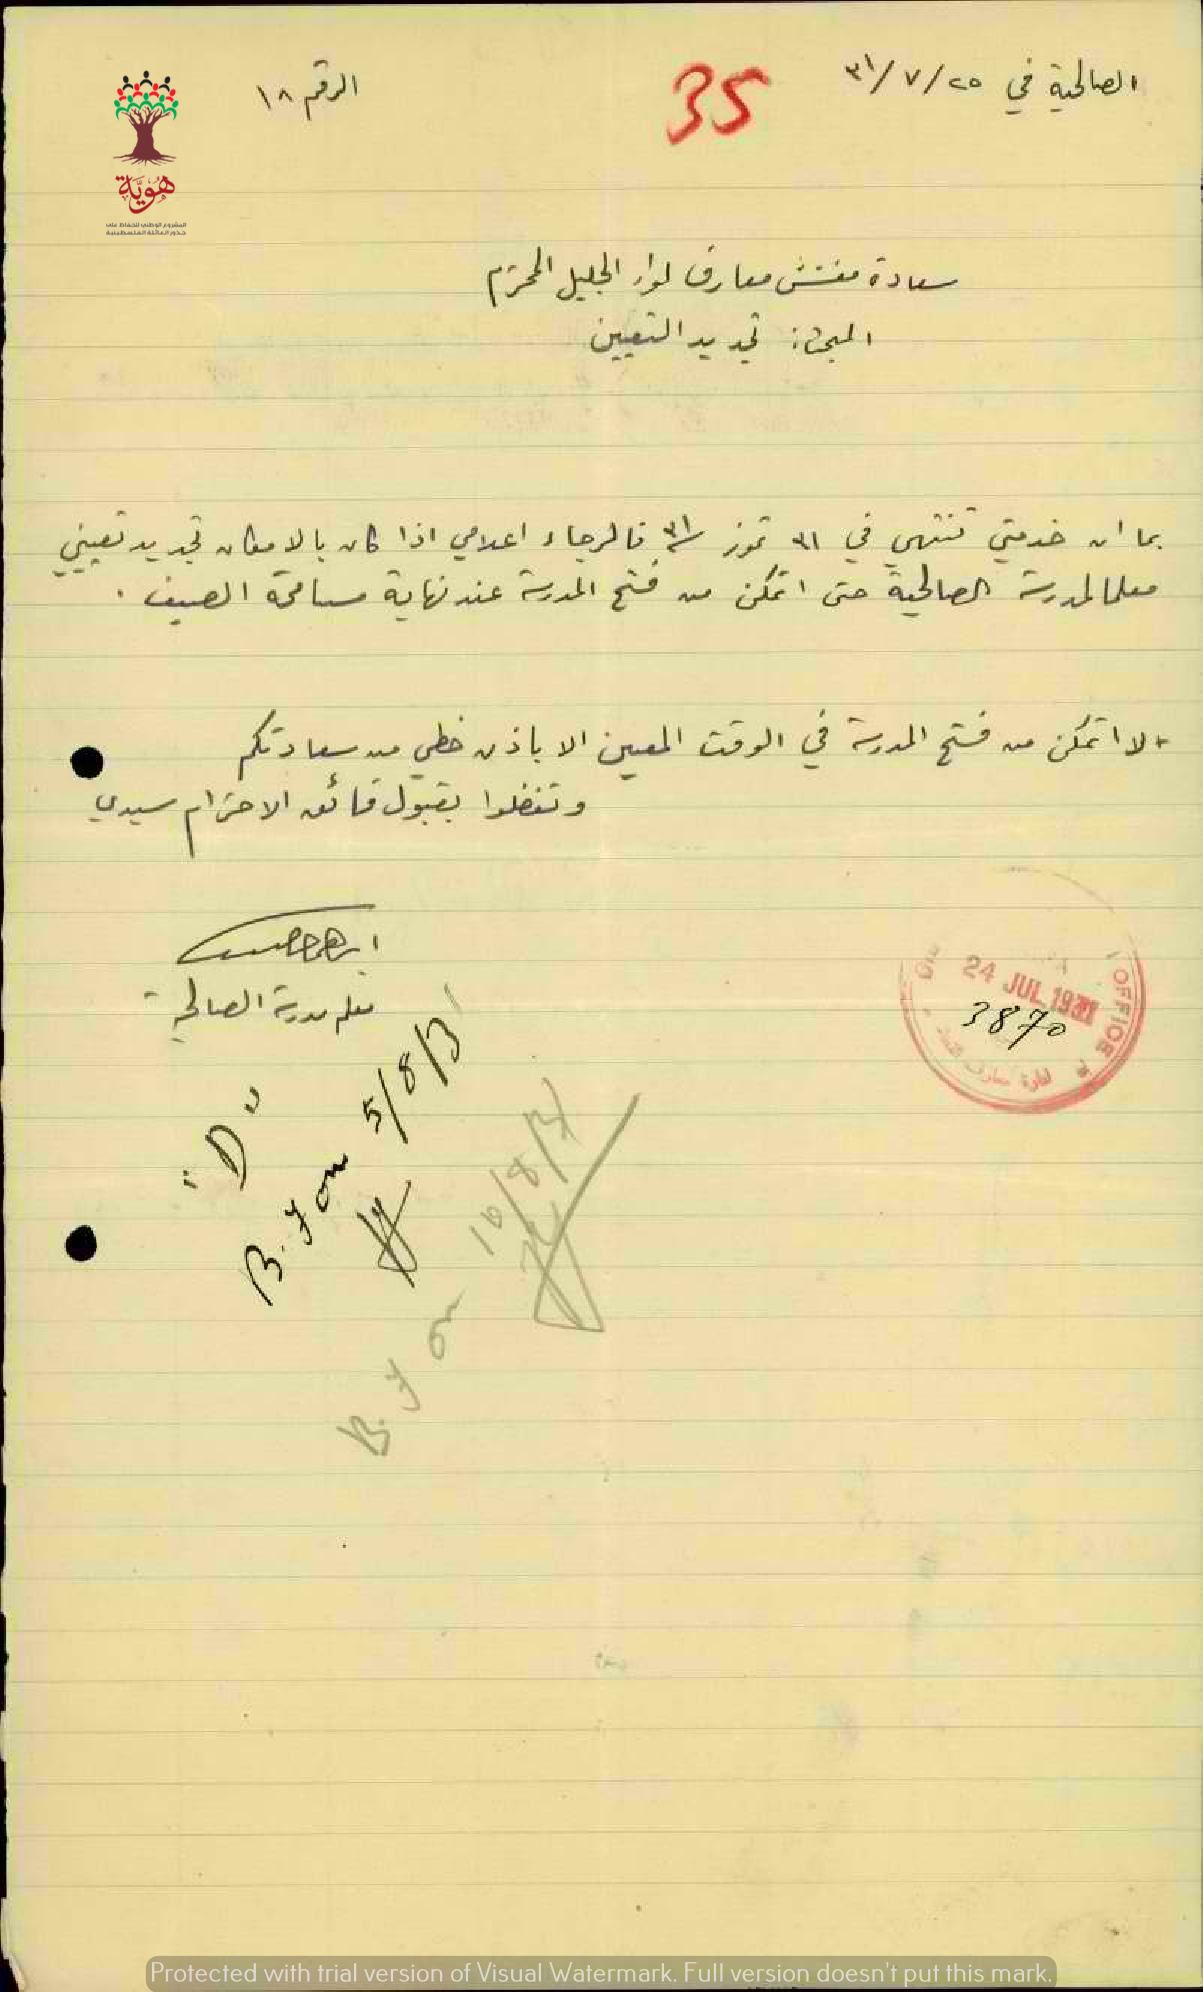 الصالحية في ٢٥/٧/٣١
35
الرقم ١٨
هُوِيَّة
المشروع الوطني للحفاظ على
جذور العائلة الفلسطينية
سعادة مفتش معارف لواء الجليل المحترم
المبحث: تجديد التعيين
بما ان خدمتي تنتهي في ٣١ تموز ٣١ فالرجاء اعلامي اذا كان بالامكان تجديد تعييني
معلما لمدرسة الصالحية حتى اتمكن من فتح المدرسة عند نهاية مسامحة الصيف .
لا اتمكن من فتح المدرسة في الوقت المعين الا باذن خطي من سعادتكم
وتفضلوا بقبول فائق الاحترام سيدي
ابرهيم
معلم مدرسة الصالحية
OFFICE
24 JUL 1931
3870
ادارة معارف
"D"
B.F on 5/8/31
B.F on 10/8/31
Protected with trial version of Visual Watermark. Full version doesn't put this mark.